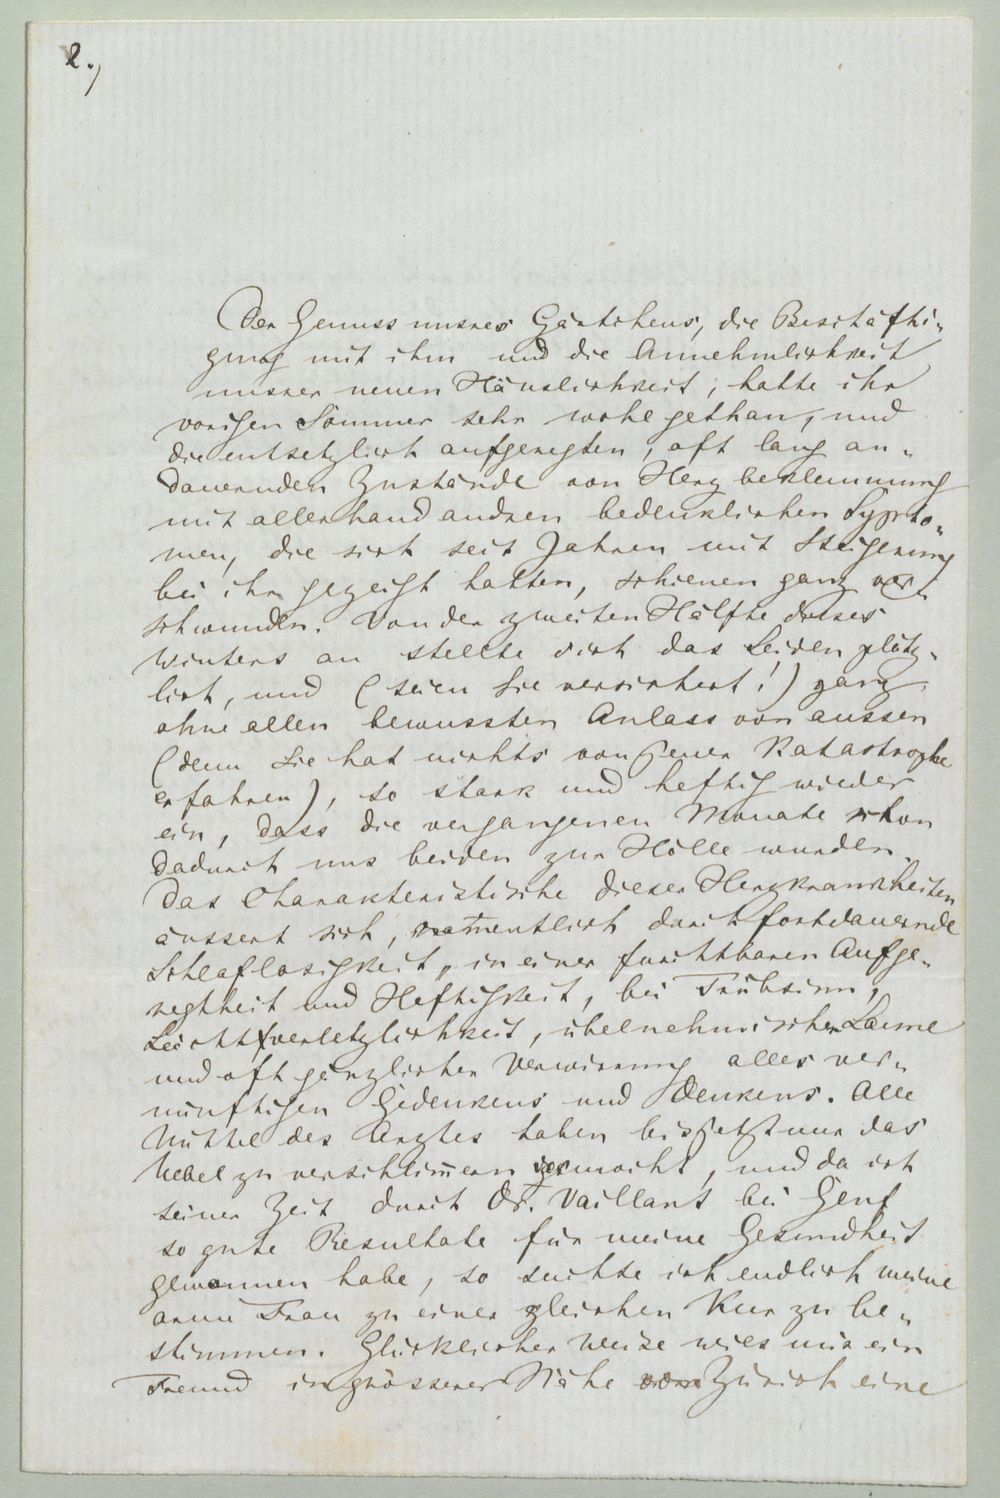 2.)
Der Genuss unsres Gärtchens, die Beschäfti-
gung mit ihm und die Annehmlichkeit
unsrer neuen Häuslichkeit, hatte ihr
vorigen Sommer sehr wohl gethan, und
die entsetzlich aufgeregten, oft lang an-
dauernden Zustände von Herzbeklemmung
mit allerhand andren bedenklichen Sypto-
men, die sich seit Jahren mit Steigerung
bei ihr gezeigt hatten, schienen ganz ver-
schwunden. Von der zweiten Hälfte dieses
Winters an stellte sich das Leiden plötz-
lich, und (seien Sie versichert!) ganz
ohne allen bewussten Anlass von aussen
(denn Sie hat nichts von jener Katastrophe
erfahren), so stark und heftig wieder
ein, dass die vergangenen Monate schon
dadurch uns beiden zur Hölle wurden.
Das Charakteristische dieser Herzkrankheiten
äussert sich, namentlich durch fortdauernde
Schlaflosigkeit, in einer furchtbaren Aufge-
regtheit und Heftigkeit, bei Trübsinn,
Leichtverletzlichkeit, übelnehmischer Laune
und oft gänzlicher Verwirrung alles ver-
nünftigen Gedenkens und Denkens. Alle
Mittel des Arztes haben bis jetzt nur das
Uebel zu verschlim̅ern vermocht, und da ich
seiner Zeit durch Dr. Vaillant bei Genf
so gute Resultate für meine Gesundheit
gewonnen habe, so suchte ich endlich meine
arme Frau zu einer gleichen Kur zu be-
stimmen. Glücklicher Weise wies mir ein
Freund in grösserer Nähe von Zürich eine